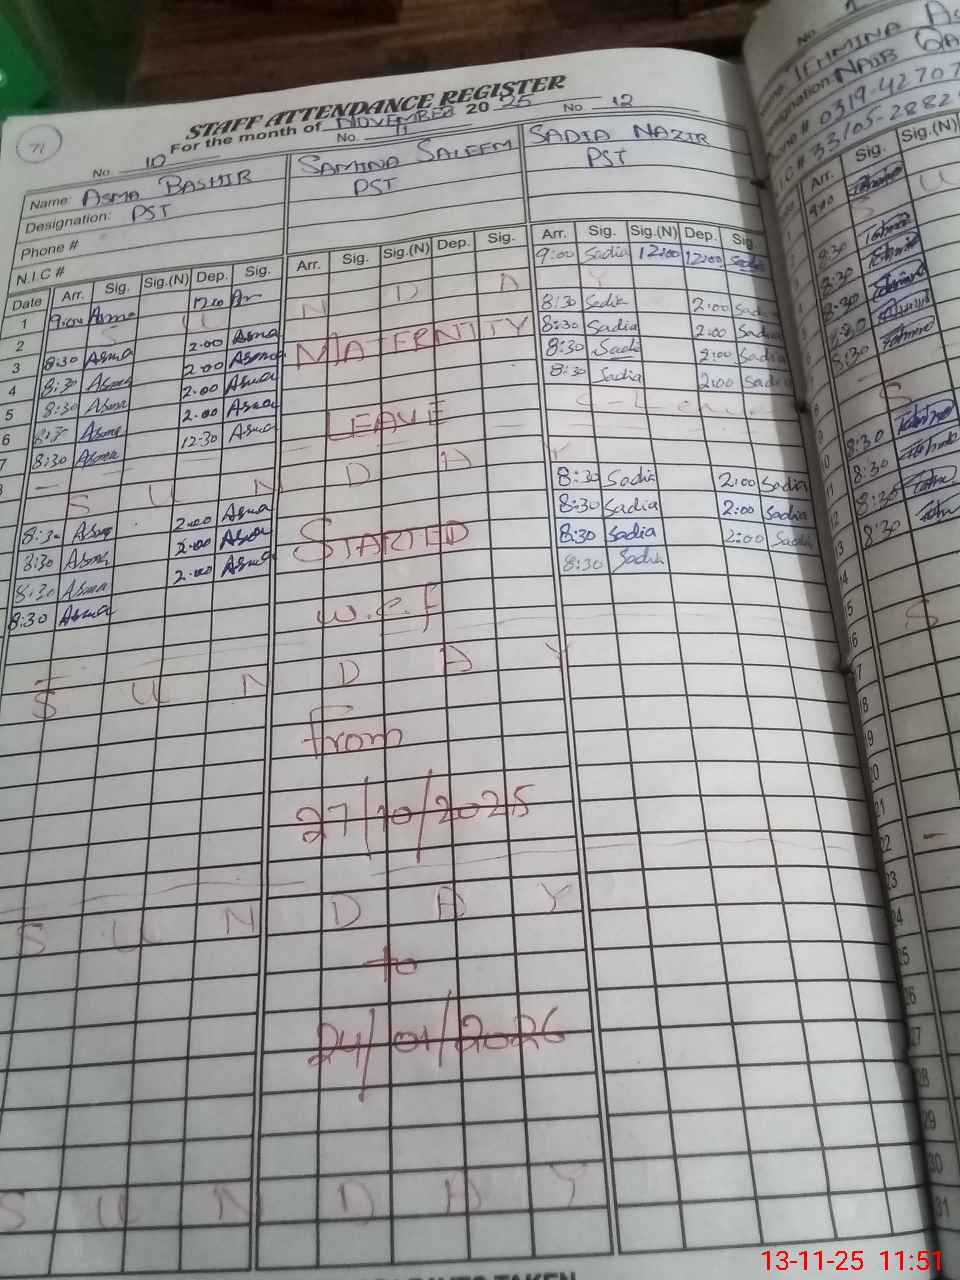 71
STAFF ATTENDANCE REGISTER
For the month of NOVEMBER 2025
No. 10 No. 11 No. 12
Name: ASMA BASHIR SAMINA SALEEM SADIA NAZIR
Designation: PST PST PST
Phone #
N.I.C #
Date Arr. Sig. Sig.(N) Dep. Sig. Arr. Sig. Sig.(N) Dep. Sig. Arr. Sig. Sig.(N) Dep. Sig.
1 9:00 Asma 12:00 9:00 Sadia 12:00 12:00 Sadia
2 S U N D A Y
3 8:30 Asma 2:00 Asma 8:30 Sadia 2:00 Sadia
4 8:30 Asma 2:00 Asma MATERNITY 8:30 Sadia 2:00 Sadia
5 8:30 Asma 2:00 Asma 8:30 Sadia 2:00 Sadia
6 8:30 Asma 2:00 Asma 8:30 Sadia 2:00 Sadia
7 8:30 Asma 12:30 Asma LEAVE
S U N D A Y
8:30 Asma 2:00 Asma 8:30 Sadia 2:00 Sadia
8:30 Asma 2:00 Asma STARTED 8:30 Sadia 2:00 Sadia
8:30 Asma 2:00 Asma 8:30 Sadia 2:00 Sadia
8:30 Asma 8:30 Sadia
w.e.f
S U N D A Y
from
27/10/2025
S U N D A Y
to
24/01/2026
S U N D A Y
No. 1
TEHMINA
Designation: NAIB
Phone # 0319-42707
N.I.C # 33105-2882
Arr. Sig. Sig.(N)
9:00
S U
8:30
8:30
8:30
8:30
8:30
S
8:30
8:30
8:30
8:30
9
10
11
12
13
14
15
16
17
18
19
20
21
22
23
24
25
26
27
28
29
30
31
S
13-11-25 11:51